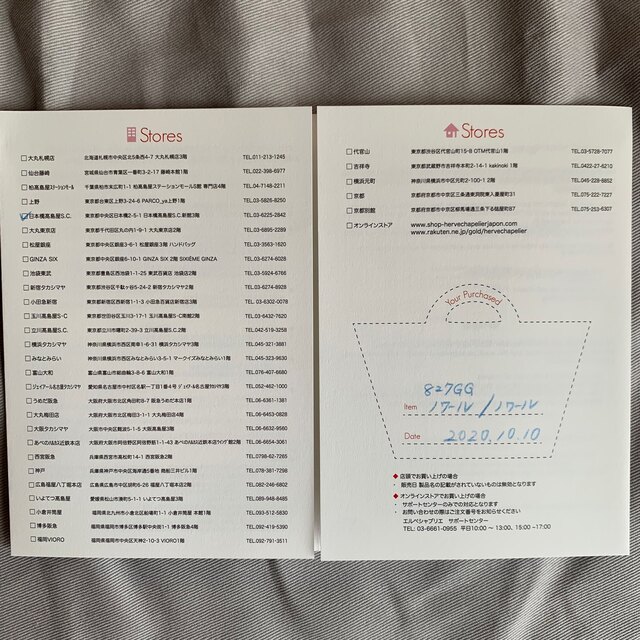 Stores
□大丸札幌店 北海道札幌市中央区北5条西4-7 大丸札幌店3階 TEL.011-213-1245
□仙台藤崎 宮城県仙台市青葉区一番町3-2-17 藤崎本館1階 TEL.022-398-6977
□柏髙島屋ステーションモール 千葉県柏市末広町1-1 柏髙島屋ステーションモールS館 専門店4階 TEL.04-7148-2211
□上野 東京都台東区上野3-24-6 PARCO_ya上野1階 TEL.03-5826-8250
☑日本橋髙島屋S.C. 東京都中央区日本橋2-5-1 日本橋髙島屋S.C.新館3階 TEL.03-6225-2842
□大丸東京店 東京都千代田区丸の内1-9-1 大丸東京店2階 TEL.03-6895-2289
□松屋銀座 東京都中央区銀座3-6-1 松屋銀座3階 ハンドバッグ TEL.03-3563-1620
□GINZA SIX 東京都中央区銀座6-10-1 GINZA SIX 2階 SIXIÈME GINZA TEL.03-6274-6028
□池袋東武 東京都豊島区西池袋1-1-25 東武百貨店 池袋店2階 TEL.03-5924-6766
□新宿タカシマヤ 東京都渋谷区千駄ヶ谷5-24-2 新宿タカシマヤ2階 TEL.03-6274-8928
□小田急新宿 東京都新宿区西新宿1-1-3 小田急百貨店新宿店3階 TEL.03-6302-0078
□玉川髙島屋S・C 東京都世田谷区玉川3-17-1 玉川髙島屋S・C 本館2階 TEL.03-6432-7620
□立川髙島屋S.C. 東京都立川市曙町2-39-3 立川髙島屋S.C.2階 TEL.042-519-3258
□横浜タカシマヤ 神奈川県横浜市西区南幸1-6-31 横浜タカシマヤ1階 TEL.045-321-3881
□みなとみらい 神奈川県横浜市西区みなとみらい3-5-1 マークイズみなとみらい1階 TEL.045-323-9630
□富山大和 富山県富山市総曲輪3-8-6 富山大和1階 TEL.076-407-1680
□ジェイアール名古屋タカシマヤ 愛知県名古屋市中村区名駅一丁目1番4号 ジェイアール名古屋タカシマヤ3階 TEL.052-462-6000
□うめだ阪急 大阪府大阪市北区角田町8-7 阪急うめだ本店1階 TEL.06-6361-1381
□大丸梅田店 大阪府大阪市北区梅田3-1-1 大丸梅田店4階 TEL.06-6453-0828
□大阪タカシマヤ 大阪府大阪市中央区難波5-1-5 大阪タカシマヤ3階 TEL.06-6634-3060
□あべのハルカス近鉄本店 大阪府大阪市阿倍野区阿倍野筋1-1-43 あべのハルカス近鉄本店ウイング館2階 TEL.06-6632-9561
□西宮阪急 兵庫県西宮市高松町14-1 西宮阪急2階 TEL.0798-62-7058
□神戸 兵庫県神戸市中央区海岸通5番地 商船三井ビル1階 TEL.078-381-7298
□広島福屋八丁堀本店 広島県広島市中区胡町6-26 福屋八丁堀本店2階 TEL.082-246-6802
□いよてつ髙島屋 愛媛県松山市湊町5-1-1 いよてつ髙島屋3階 TEL.089-948-8485
□小倉井筒屋 福岡県北九州市小倉北区船場町1-1 小倉井筒屋 本館1階 TEL.093-512-5830
□博多阪急 福岡県福岡市博多区博多駅中央街1-1 博多阪急4階 TEL.092-419-5390
□福岡VIORO 福岡県福岡市中央区天神2-10-3 VIORO1階 TEL.092-791-3511
Stores
□代官山 東京都渋谷区代官山町15-8 OTM代官山1階 TEL.03-5728-7077
□吉祥寺 東京都武蔵野市吉祥寺本町2-14-1 kakinoki 1階 TEL.0422-27-6210
□横浜元町 神奈川県横浜市中区元町2-100-1 2階 TEL.045-228-7852
□京都 京都府京都市中京区三条通東洞院東入菱屋町31 TEL.075-222-7227
□京都別館 京都府京都市中京区御幸町通三条下る海老屋町 TEL.075-253-6307
□オンラインストア www.shop-hervechapelierjapon.com
www.rakuten.ne.jp/gold/hervechapelier
Your Purchased
827GG
Item ノワール/ノワール
Date 2020.10.10
◆店頭でお買い上げの場合
・販売日 製品名の記載がされていないものは無効となります
◆オンラインストアでお買い上げの場合
・サポートセンターのみでの対応となります
・お問い合わせの際はご注文番号をお知らせください
エルベシャプリエ サポートセンター
TEL: 03-6661-0955 平日10:00 ～ 13:00、15:00 ~17:00